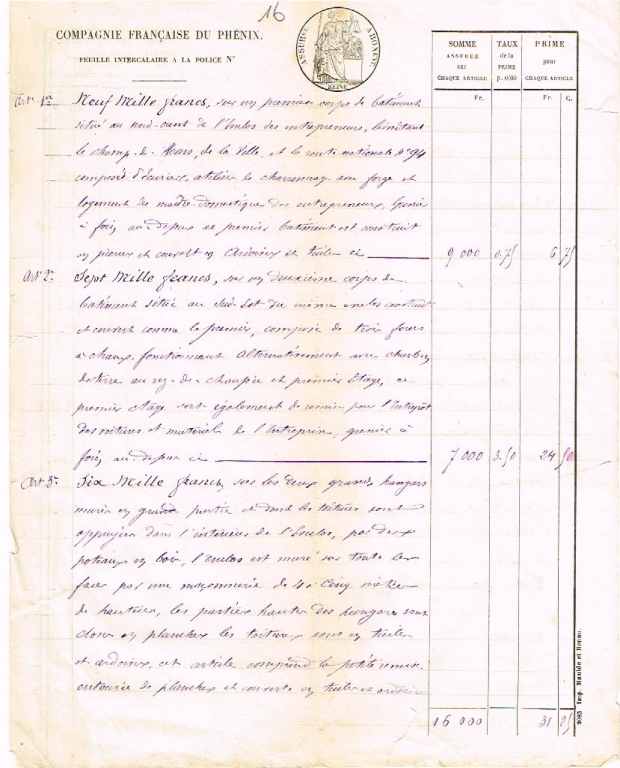 16
COMPAGNIE FRANÇAISE DU PHÉNIX.
FEUILLE INTERCALAIRE A LA POLICE N°
ASSURCE ABONNEMT
SEINE
SOMME ASSURÉE sur CHAQUE ARTICLE
TAUX de la PRIME p. 0/00
PRIME pour CHAQUE ARTICLE
Fr. Fr. C.
Art 1er Neuf Mille francs, sur un premier corps de bâtiment
situé au nord-ouest de l'Enclos des entrepreneurs, limitant
le champ de Mars, de la Ville, et la route nationale N° 94
composé d'Ecuries, atelier de charronnage avec forge et
logement du maître-domestique des entrepreneurs, Grenier
à foin au-dessus ce premier batiment est construit
en pierres et couvert en Ardoises et tuiles ci 9 000 0.75 6 75
Art 2e Sept Mille francs, sur un deuxième corps de
batiment situé au Sud-Est du même enclos construit
et couvert comme le premier, composé de trois fours
à chaux fonctionnant alternativement avec charbon
de terre au rez-de-chaussée et premier Etage, ce
premier étage sert également de remise pour l'Entrepôt
des voitures et matériel de l'Entreprise, grenier à
foin au-dessus ci 7 000 3.50 24 50
Art 3e Six Mille francs, sur les deux grands hangars
murés en grande partie et dont les toitures sont
appuyées dans l'intérieur de l'Enclos, par des
poteaux en bois, l'enclos est muré sur toute les
faces par une maçonnerie de 4 à Cinq mètres
de hauteur, les parties hautes des hangars sont
closes en planches les toitures sont en tuiles
et ardoises, cet article comprend la petite remise
entourée de planches et couverte en tuiles et ardoises
16 000 31 25
2083 Imp. Maulde et Renou.